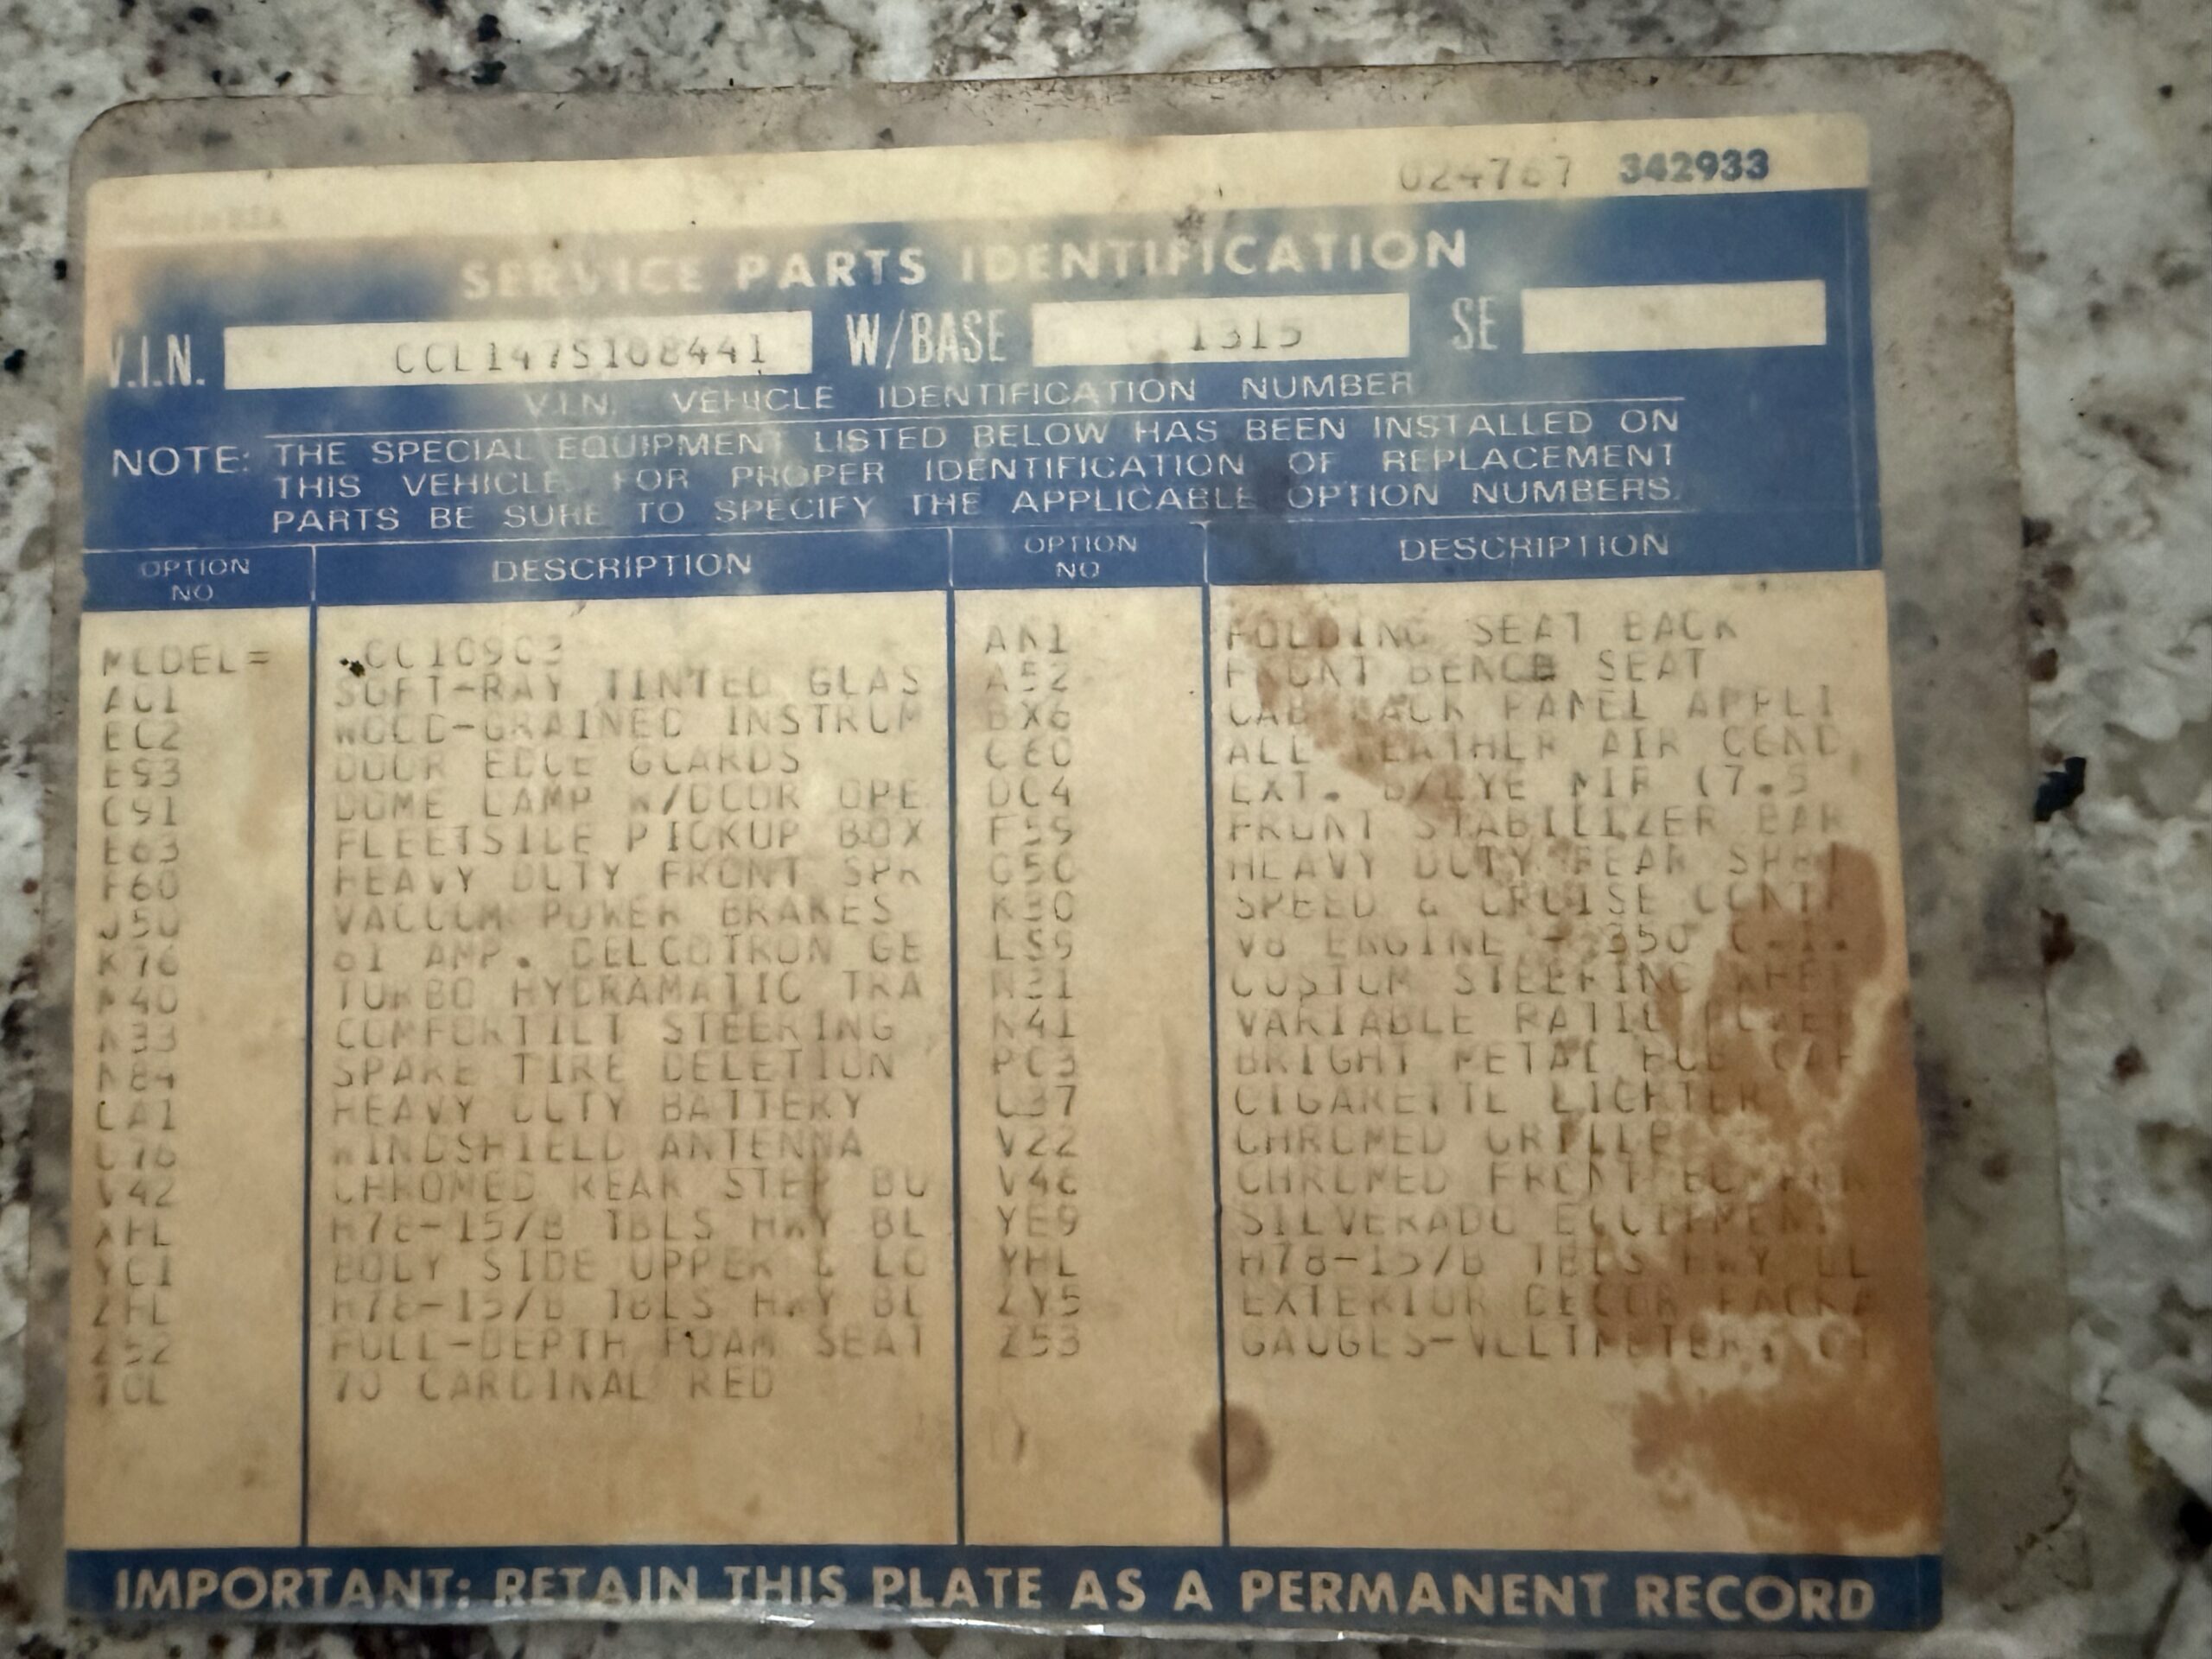 342933
SERVICE PARTS IDENTIFICATION
V.I.N. CCL147S108441 W/BASE 1315 SE
V.I.N. VEHICLE IDENTIFICATION NUMBER
NOTE: THE SPECIAL EQUIPMENT LISTED BELOW HAS BEEN INSTALLED ON
THIS VEHICLE. FOR PROPER IDENTIFICATION OF REPLACEMENT
PARTS BE SURE TO SPECIFY THE APPLICABLE OPTION NUMBERS.
OPTION NO DESCRIPTION OPTION NO DESCRIPTION
MODEL= CC10903 AN1 FOLDING SEAT BACK
A01 SOFT-RAY TINTED GLAS A52 FRONT BENCH SEAT
BC2 WOOD-GRAINED INSTRUM BX6 CAB BACK PANEL APPLI
B93 DOOR EDGE GUARDS C60 ALL WEATHER AIR COND
C91 DOME LAMP W/DOOR OPE DC4 EXT. B/EYE MIR (7.5
E63 FLEETSIDE PICKUP BOX F59 FRONT STABILIZER BAR
F60 HEAVY DUTY FRONT SPR G50 HEAVY DUTY REAR SPRI
J50 VACUUM POWER BRAKES K30 SPEED & CRUISE CONTR
K76 61 AMP. DELCOTRON GE LS9 V8 ENGINE - 350 C.I.
M40 TURBO HYDRAMATIC TRA N31 CUSTOM STEERING WHEE
N33 COMFORTILT STEERING N41 VARIABLE RATIO POWER
N84 SPARE TIRE DELETION PC3 BRIGHT METAL HUB CAP
UA1 HEAVY DUTY BATTERY U37 CIGARETTE LIGHTER
U76 WINDSHIELD ANTENNA V22 CHROMED GRILLE
V42 CHROMED REAR STEP BU V48 CHROMED FRONT
XHL H78-15/B TBLS HWY BL YE9 SILVERADO EQUIPMENT
YC1 BODY SIDE UPPER & LO YHL H78-15/B TBLS HWY BL
ZHL H78-15/B TBLS HWY BL ZY5 EXTERIOR DECOR PACKA
Z52 FULL-DEPTH FOAM SEAT Z53 GAUGES-VOLTMETER,
70L 70 CARDINAL RED
IMPORTANT: RETAIN THIS PLATE AS A PERMANENT RECORD